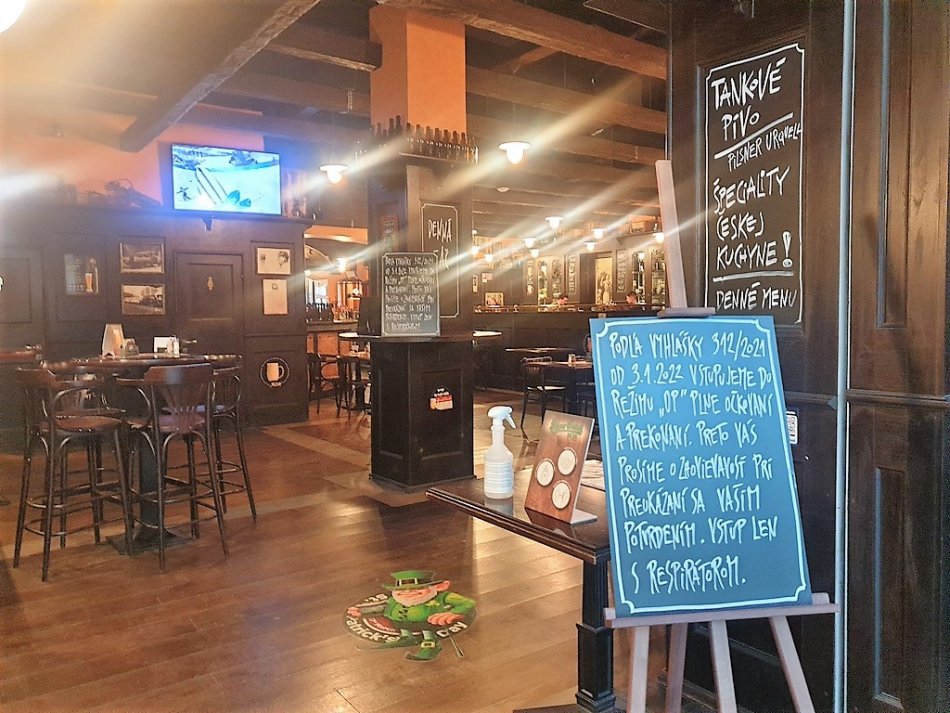 TANKOVÉ
PIVO
PILSNER URQUELL
ŠPECIALITY
ČESKEJ
KUCHYNE!
DENNÉ MENU
DENNÁ
PODĽA VYHLÁŠKY 312/2021
OD 3.1.2022 VSTUPUJEME DO
REŽIMU „OP" PLNE OČKOVANÍ
A PREKONANÍ. PRETO VÁS
PROSÍME O ZHOVIEVAVOSŤ PRI
PREUKÁZANÍ SA VAŠIM
POTVRDENÍM. VSTUP LEN
S RESPIRÁTOROM.
PODĽA VYHLÁŠKY 312/2021
OD 3.1.2022
S RESPIRÁTOROM.
St.
Patrick's
Day